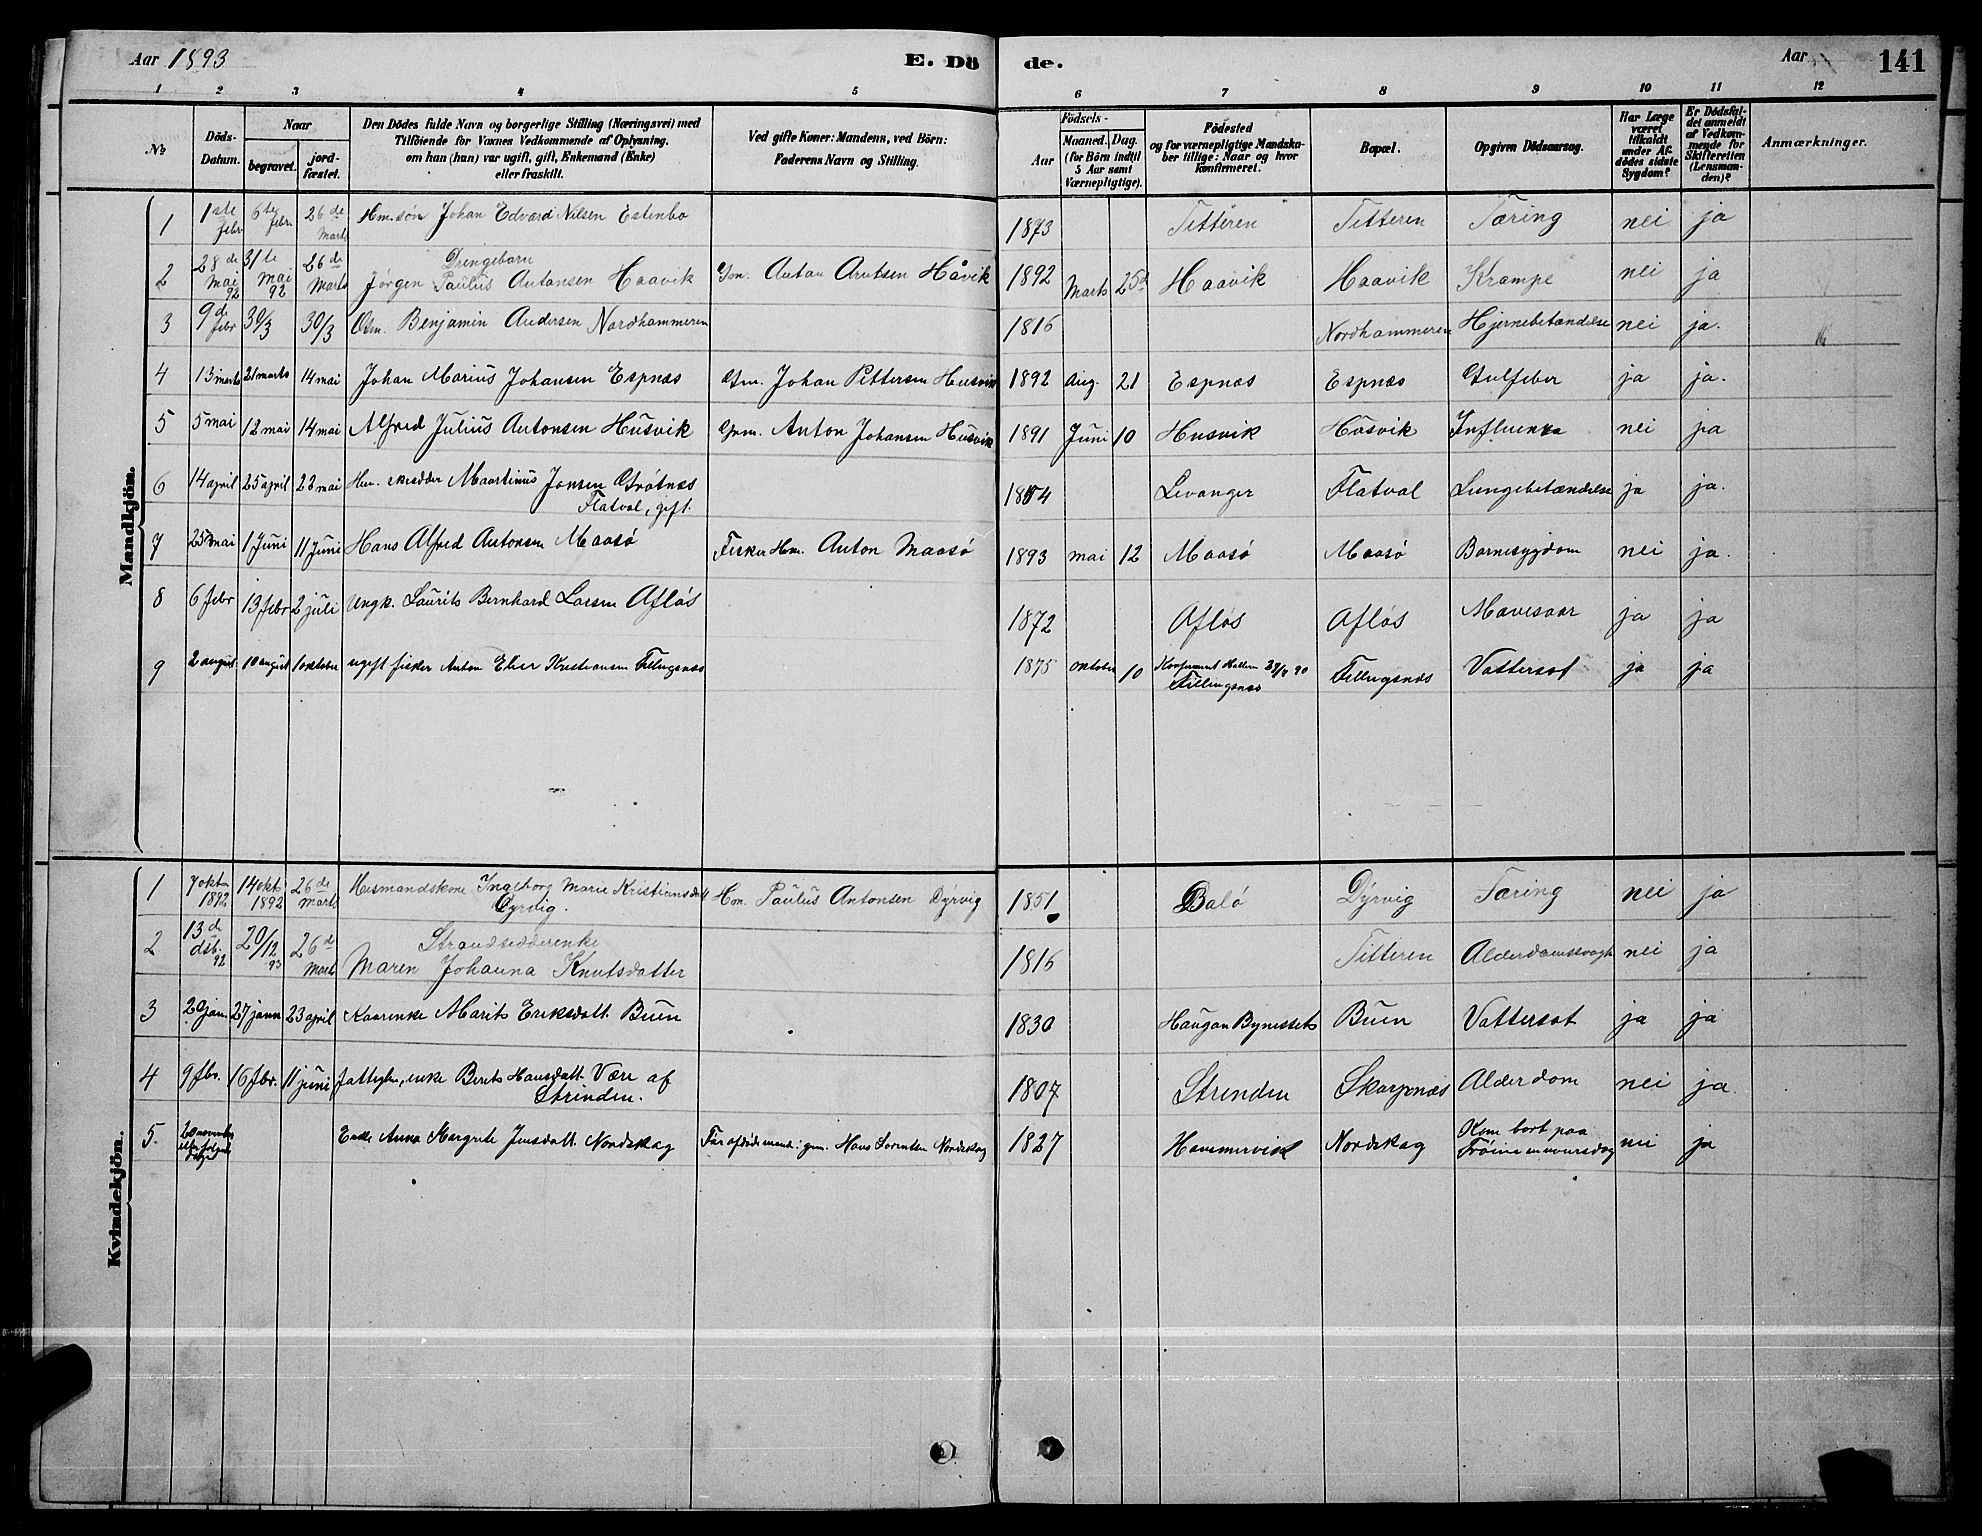 Aar 1893 E. Dö de. Aar 141
1 2 3 4 5 6 7 8 9 10 11 12
No
Döds-
Datum.
Naar
begravet.
jord-
fæstet.
Den Dödes fulde Navn og borgerlige Stilling (Næringsvei) med
Tilföiende for Voxnes Vedkommende af Oplysning,
om han (hun) var ugift, gift, Enkemand (Enke)
eller fraskilt.
Ved gifte Koner: Mandens, ved Börn:
Faderens Navn og Stilling.
Födsels-
Aar
Maaned. Dag.
(for Börn indtil
5 Aar samt
Værnepligtige).
Födested
og for værnepligtige Mandska-
ber tillige: Naar og hvor
konfirmeret.
Bopæl.
Opgiven Dödsaarsag.
Har Læge
været
tilkaldt
under Af-
dödes sidste
Sygdom?
Er Dödsfal-
det anmeldt
af Vedkom-
mende for
Skifteretten
(Lensman-
den)?
Anmærkninger.
Mandkjön.
1 1ste febr 6te febr. 26de Marts Hm. søn Johan Edvard Nilsen Estenbo 1873 Titteren Titteren Tæring nei ja
2 28de Mai 92 31te Mai 92 26de Marts Drengebarn
Jørgen Paulus Antonsen Haavik Gm. Anton Arntsen Håvik 1892 Marts 25de Haavik Haavik Krampe nei ja
3 9de febr 30/3 30/3 Gm. Benjamin Andersen Nordhammeren 1816 Nordhammeren Hjernebetændelse nei ja.
4 13 marts 21 marts 14 mai Johan Marius Johansen Espnæs Gm. Johan Pettersen Husvik 1892 Aug. 21 Espnæs Espnæs Gulfeber ja ja.
5 5 mai 12 mai 14 mai Alfred Julius Antonsen Husvik Gm. Anton Johansen Husvik 1891 Juni 10 Husvik Husvik Influenza nei ja
6 14 april 25 april 23 mai Hm. skredder Maartinus Jonsen Grøtnæs
Flatval, gift. 1854 Levanger Flatval Lungebetændelse ja ja.
7 25 mai 1 Juni 11 Juni Hans Alfred Antonsen Maasø Fisker Hm. Anton Maasø 1893 mai 12 Maasø Maasø Barnesygdom nei ja.
8 6 febr 13 febr 2 juli Ungk. Laurits Bernhard Larsen Afløs 1872 Afløs Afløs Mavesaar ja ja
9 2 august 10 august 1 oktober ugift fisker Anton Elier Kristiansen Fillingsnæs 1875 oktober 10 Konfirmeret
Fillingsnæs Fillingsnæs Vattersot ja ja
Kvindekjön.
1 7 okt 1892 14 okt 1892 26de marts Husmandskone Ingeborg Marie Kristiansdatt
Dyrvig. Hm. Paulus Antonsen Dyrvig 1851 Balø Dyrvig Tæring nei ja
2 13de dsb. 92 20/12 93 26de Marts Strandsidderenke
Maren Johanna Knutsdatter 1816 Titteren Alderdomssvagh nei ja
3 20 jan. 27 jann 23 april Kaarenke Marits Eriksdatt. Buen 1830 Haugan Bynesset Buen Vattersot ja ja
4 9 fbr. 16 fbr. 11 juni fattiglm, enke Berits Hansdatt. Være af
Strinden. 1807 Strinden Skarpnæs Alderdom nei ja
5. 20 november Enke Anna Margrite Jensdatt. Nordskag Før afdøde mand: gm. Hans Lorentsen Nordskag 1827 Hammervik Nordskag Kom bort paa
Frøien nei ja